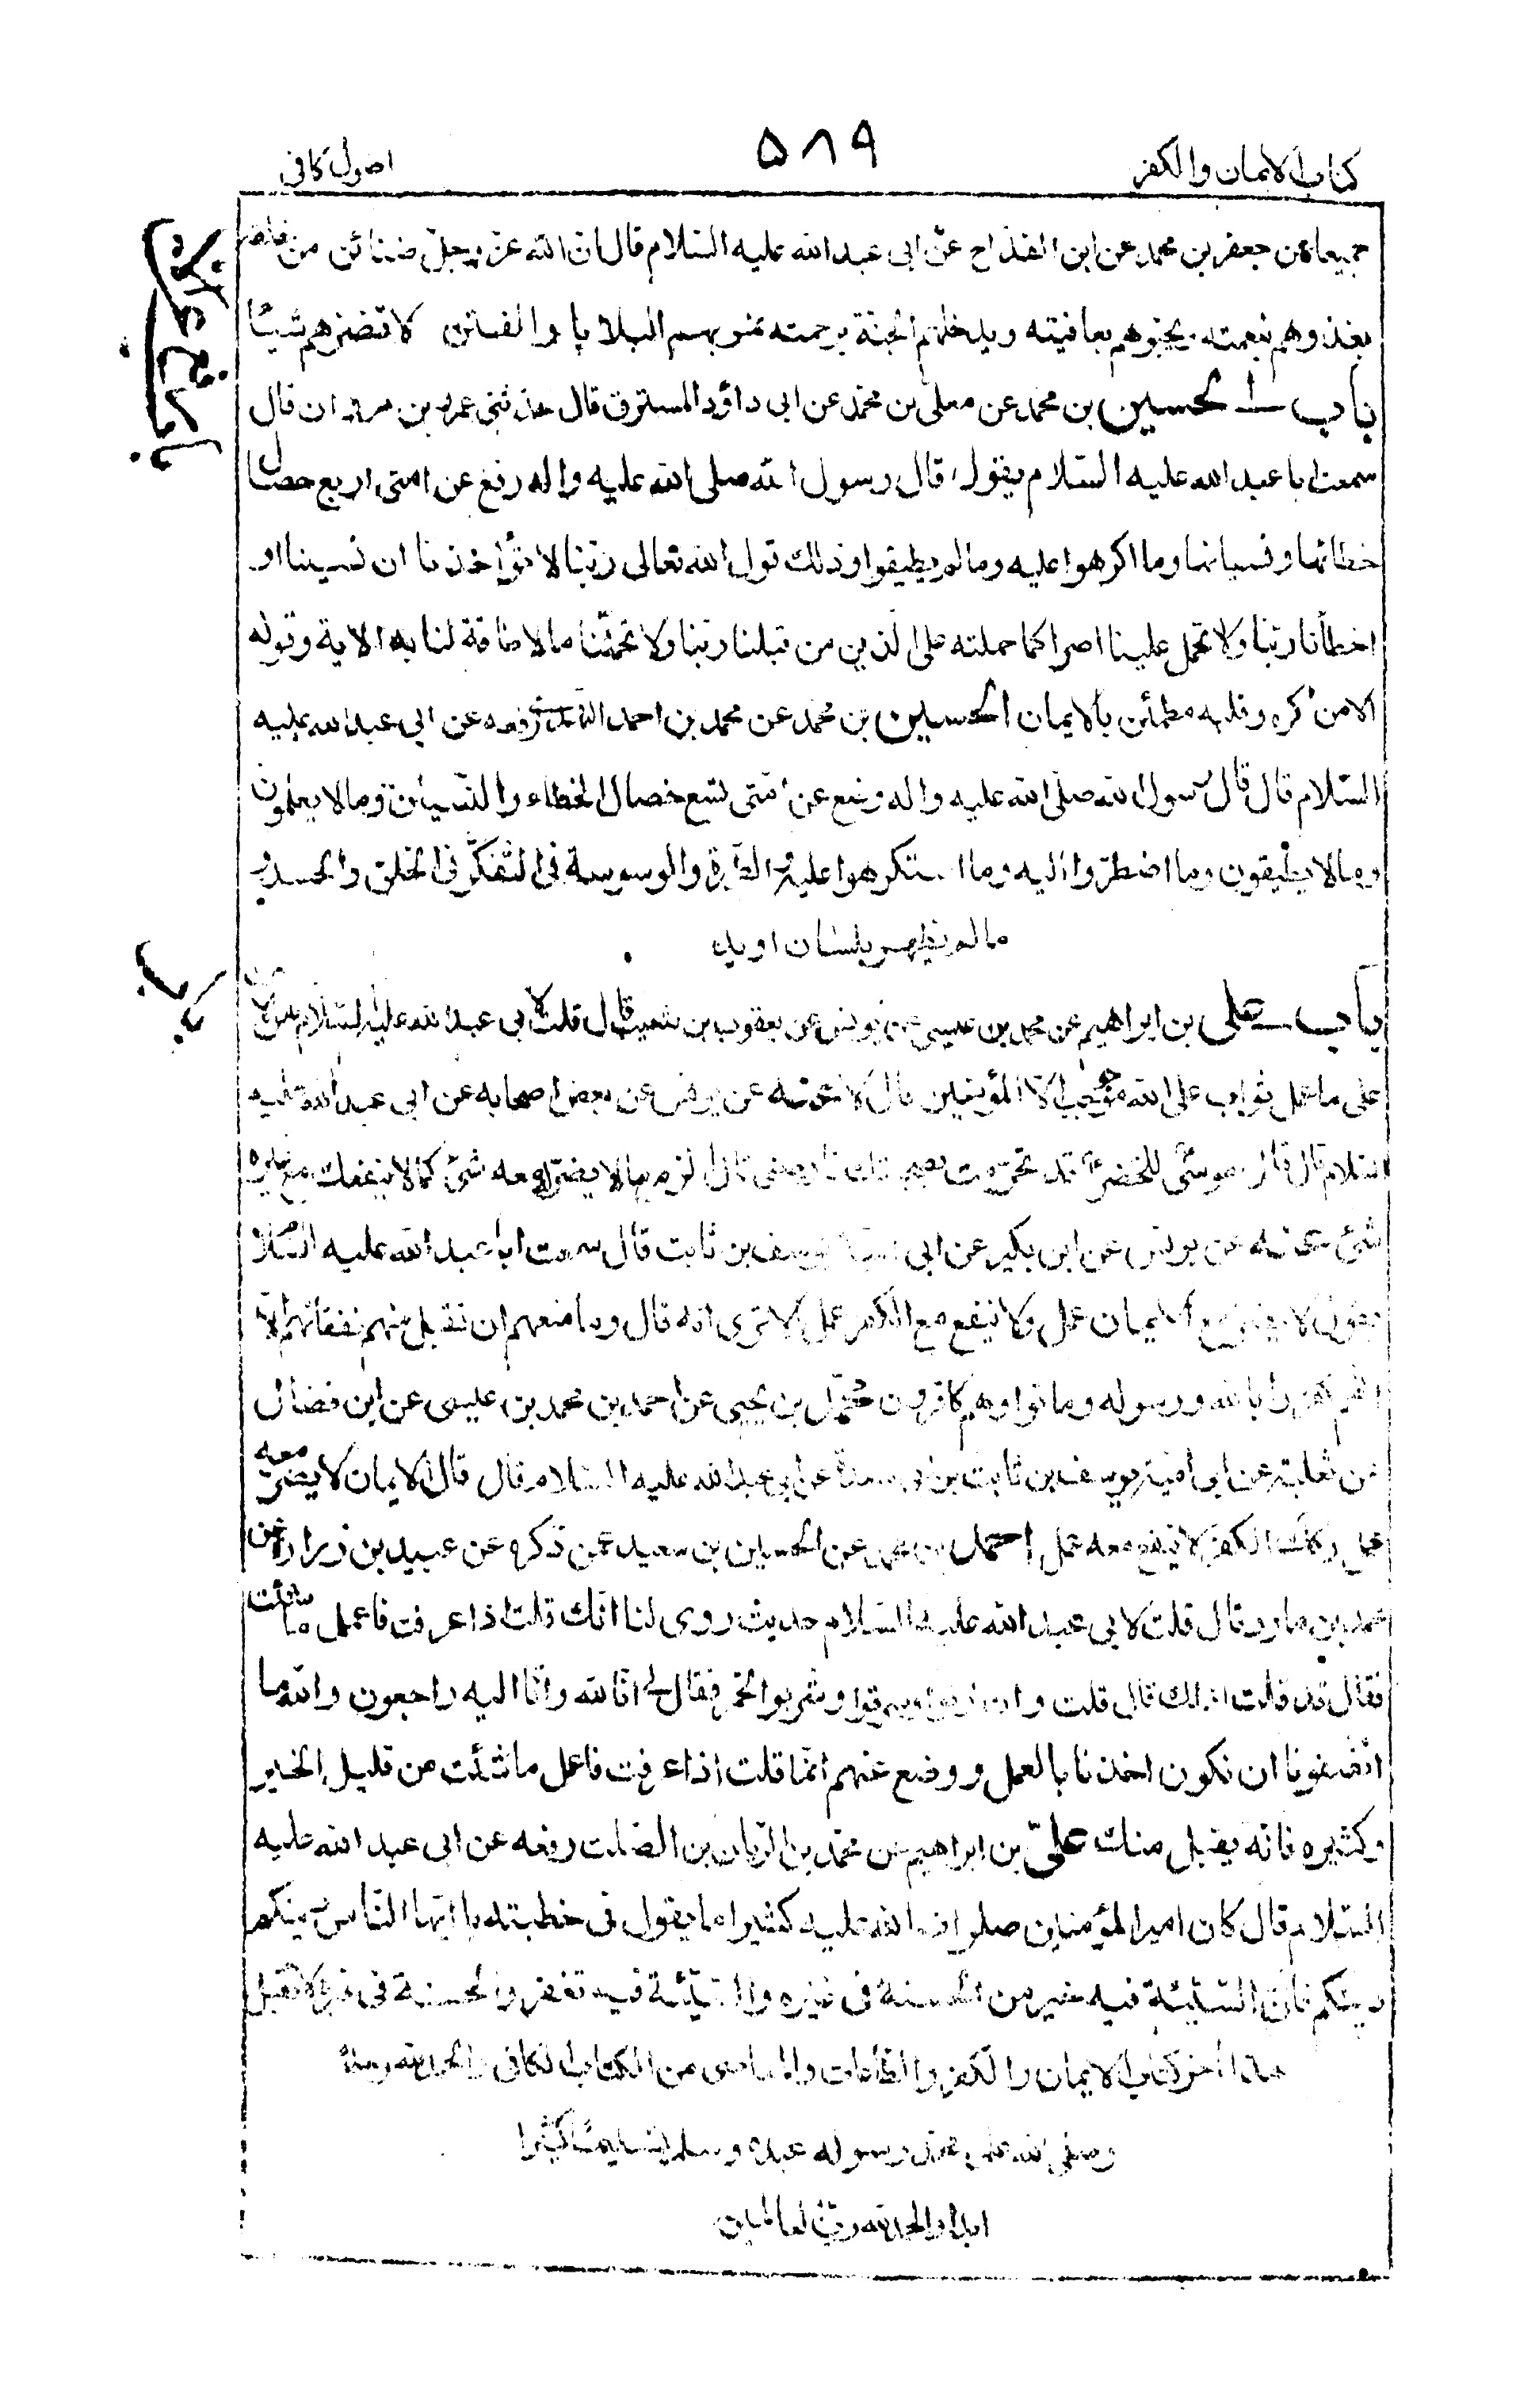 كتاب الايمان والكفر
٥٨٩
اصول كافى
جميعا عن جعفر بن محمد عن ابن القداح عن ابى عبد الله عليه السلام قال ان الله عز وجل ضنائن من خلقه
يغذوهم بنعمته ويحبوهم بعافيته ويدخلهم الجنة برحمته تمر بهم البلايا والفتن لا تضرهم شيئا
باب الحسين بن محمد عن معلى بن محمد عن ابى داؤد المسترق قال حدثنى عمرو بن مروان قال
سمعت ابا عبد الله عليه السلام يقول قال رسول الله صلى الله عليه واله رفع عن امتى اربع خصال
خطائها ونسيانها وما اكرهوا عليه وما لم يطيقوا وذلك قول الله تعالى ربنا لا تؤاخذنا ان نسينا او
اخطأنا ربنا ولا تحمل علينا اصرا كما حملته على الذين من قبلنا ربنا ولا تحملنا ما لا طاقة لنا به الاية وقوله
الا من اكره وقلبه مطمئن بالايمان الحسين بن محمد عن محمد بن احمد النهدى رفعه عن ابى عبد الله عليه
السلام قال قال رسول الله صلى الله عليه واله وضع عن امتى تسع خصال الخطاء والنسيان وما لا يعلمون
وما لا يطيقون وما اضطروا اليه وما استكرهوا عليه والطيرة والوسوسة فى التفكر فى الخلق والحسد
ما لم يظهر بلسان او يد
باب على بن ابراهيم عن محمد بن عيسى عن يونس عن يعقوب بن شعيب قال قلت لابى عبد الله عليه السلام هل لاحد
على ما عمل ثواب على الله موجب الا المؤمنين قال لا عنه عن يونس عن بعض اصحابه عن ابى عبد الله عليه
السلام قال قال موسى للخضر قد تحرمت بصحبتك فاوصنى قال الزم ما لا يضرك معه شئ كما لا ينفعك مع غيره
شئ عنه عن يونس عن ابن بكير عن ابى امية يوسف بن ثابت قال سمعت ابا عبد الله عليه السلام
يقول لا يضر مع الايمان عمل ولا ينفع مع الكفر عمل الا ترى انه قال وما منعهم ان تقبل منهم نفقاتهم الا
انهم كفروا بالله ورسوله وماتوا وهم كافرون محمد بن يحيى عن احمد بن محمد بن عيسى عن ابن فضال
عن ثعلبة عن ابى امية يوسف بن ثابت بن ابى سعدة عن ابى عبد الله عليه السلام قال قال الايمان لا يضر معه
عمل وكذلك الكفر لا ينفع معه عمل احمد بن محمد عن الحسين بن سعيد عمن ذكره عن عبيد بن زرارة عن
محمد بن مارد قال قلت لابى عبد الله عليه السلام حديث روى لنا انك قلت اذا عرفت فاعمل ما شئت
فقال قد قلت ذلك قال قلت وان زنوا او سرقوا او شربوا الخمر فقال لى انا لله وانا اليه راجعون والله ما
انصفونا ان نكون اخذنا بالعمل ووضع عنهم انما قلت اذا عرفت فاعمل ما شئت من قليل الخير
وكثيره فانه يقبل منك على بن ابراهيم عن محمد بن الريان بن الصلت رفعه عن ابى عبد الله عليه
السلام قال كان امير المؤمنين صلوات الله عليه كثيرا ما يقول فى خطبته يا ايها الناس دينكم
دينكم فان السيئة فيه خير من الحسنة فى غيره والسيئة فيه تغفر والحسنة فى غيره لا تقبل
هذا اخر كتاب الايمان والكفر والطاعات والمعاصى من الكتاب الكافى والحمد لله وحده
وصلى الله على محمد رسوله عبده وسلم تسليما كثيرا
ابدا والحمد لله رب العالمين
باب